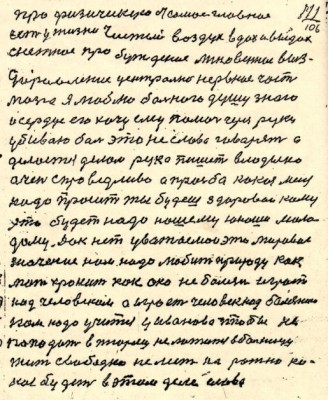 про физическую я самое главное 111
есть у жизни чистый воздух вдох и выдох 106
снежное пробуждение мгновенное выз-
доровление центрально нервное част
мозга я люблю больного душу знаю
и сердце его хочу ему помоч чуя руки
убиваю бол это не слова говарят а
делается делом рука пишет владыко
очен справедливо а прозба какая меня
надо просит ты будеш здоровая кому
это будет надо нашему юноши мола
дому. Як нет уважаемоя это мировое
значение нам надо любит природу как
мат хранит как око не болезн играет
над человеком а играет человек над болезнию
нам надо учится у иванова чтобы не
попадат в тюрму не ложится в болницу
жит свободно не лезт на рожно ка-
кая будет в этом деле слава